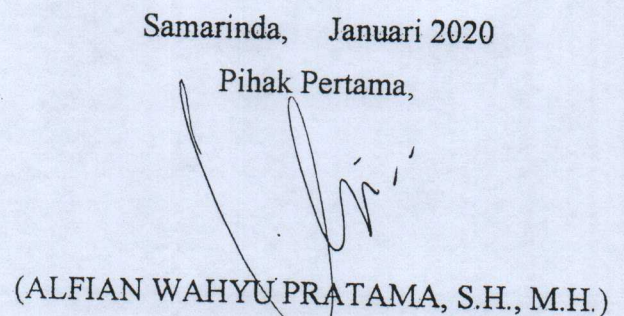 Samarinda, Januari 2020
Pihak Pertama,
(ALFIAN WAHYU PRATAMA, S.H., M.H.)